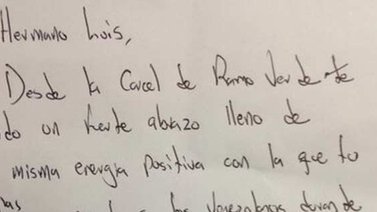 Hermano Luis,
Desde la Carcel de Ramo Verde te
do un fuerte abrazo lleno de
misma energia positiva con la que tu
las venezolanos durante